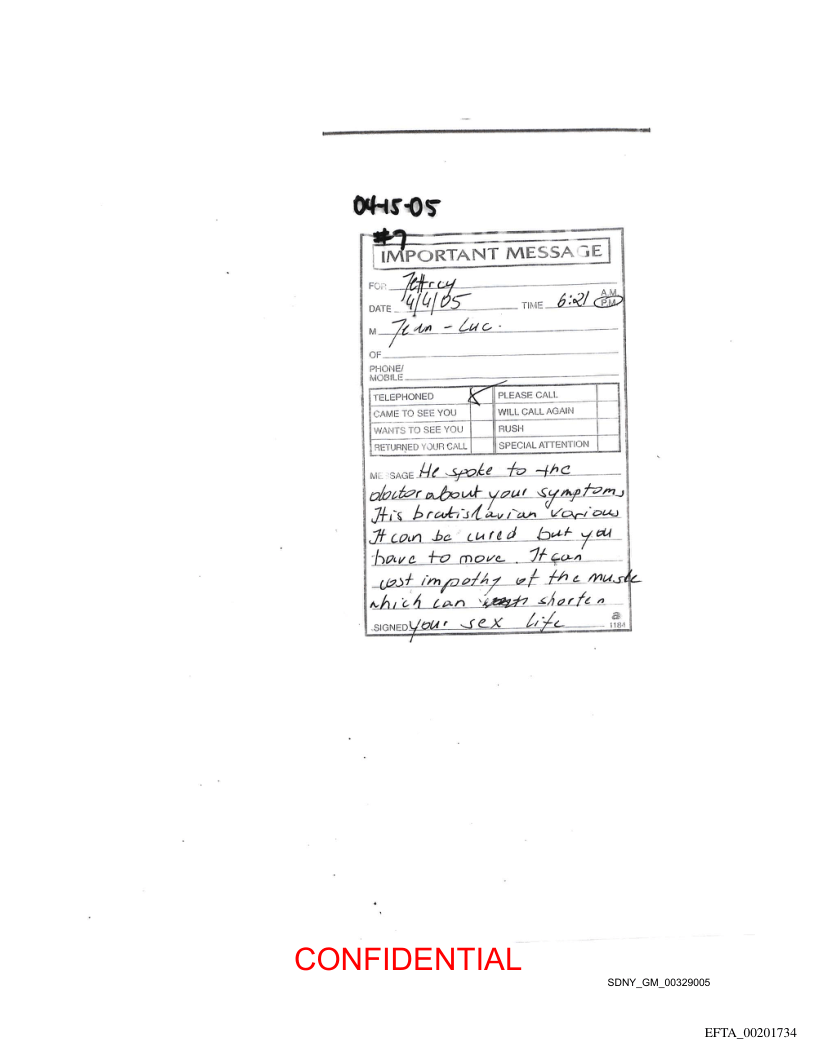 04-15-05
#7
IMPORTANT MESSAGE
FOR Jeffrey
DATE 4/4/05 TIME 6:21 A.M. P.M.
M Jean - Luc.
OF
PHONE/
MOBILE
TELEPHONED PLEASE CALL
CAME TO SEE YOU WILL CALL AGAIN
WANTS TO SEE YOU RUSH
RETURNED YOUR CALL SPECIAL ATTENTION
MESSAGE He spoke to the
doctor about your symptoms
It is bratislavian various
It can be cured but you
have to move. It can
cost impathy of the muscle
which can shorten
SIGNED your sex life 1184
CONFIDENTIAL
SDNY_GM_00329005
EFTA_00201734